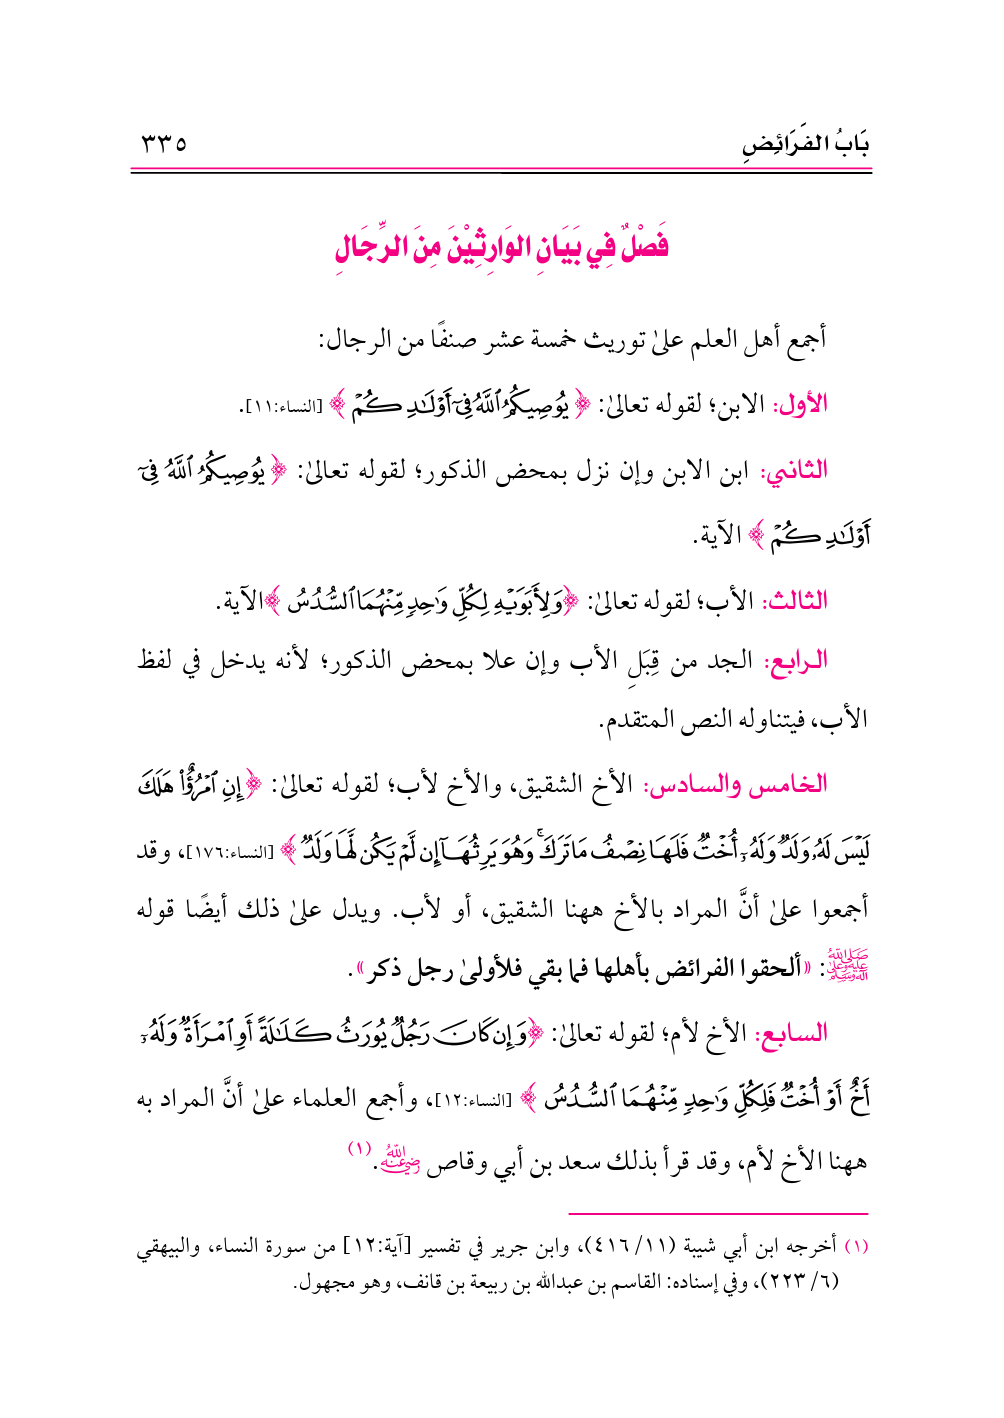 بَابُ الفَرَائِضِ ٣٣٥
فَصْلٌ فِي بَيَانِ الوَارِثِيْنَ مِنَ الرِّجَالِ
أجمع أهل العلم علىٰ توريث خمسة عشر صنفًا من الرجال:
الأول: الابن؛ لقوله تعالىٰ: ﴿يُوصِيكُمُ ٱللَّهُ فِىٓ أَوْلَـٰدِكُمْ﴾ [النساء:١١].
الثاني: ابن الابن وإن نزل بمحض الذكور؛ لقوله تعالىٰ: ﴿يُوصِيكُمُ ٱللَّهُ فِىٓ
أَوْلَـٰدِكُمْ﴾ الآية.
الثالث: الأب؛ لقوله تعالىٰ: ﴿وَلِأَبَوَيْهِ لِكُلِّ وَٰحِدٍ مِّنْهُمَا ٱلسُّدُسُ﴾ الآية.
الرابع: الجد من قِبَلِ الأب وإن علا بمحض الذكور؛ لأنه يدخل في لفظ
الأب، فيتناوله النص المتقدم.
الخامس والسادس: الأخ الشقيق، والأخ لأب؛ لقوله تعالىٰ: ﴿إِنِ ٱمْرُؤٌا۟ هَلَكَ
لَيْسَ لَهُۥ وَلَدٌ وَلَهُۥٓ أُخْتٌ فَلَهَا نِصْفُ مَا تَرَكَ ۚ وَهُوَ يَرِثُهَآ إِن لَّمْ يَكُن لَّهَا وَلَدٌ﴾ [النساء:١٧٦]، وقد
أجمعوا علىٰ أنَّ المراد بالأخ ههنا الشقيق، أو لأب. ويدل علىٰ ذلك أيضًا قوله
ﷺ: «ألحقوا الفرائض بأهلها فما بقي فلأولىٰ رجل ذكر».
السابع: الأخ لأم؛ لقوله تعالىٰ: ﴿وَإِن كَانَ رَجُلٌ يُورَثُ كَلَـٰلَةً أَوِ ٱمْرَأَةٌ وَلَهُۥٓ
أَخٌ أَوْ أُخْتٌ فَلِكُلِّ وَٰحِدٍ مِّنْهُمَا ٱلسُّدُسُ﴾ [النساء:١٢]، وأجمع العلماء علىٰ أنَّ المراد به
ههنا الأخ لأم، وقد قرأ بذلك سعد بن أبي وقاص رضي الله عنه.(١)
(١) أخرجه ابن أبي شيبة (١١/ ٤١٦)، وابن جرير في تفسير [آية:١٢] من سورة النساء، والبيهقي
(٦/ ٢٢٣)، وفي إسناده: القاسم بن عبدالله بن ربيعة بن قانف، وهو مجهول.